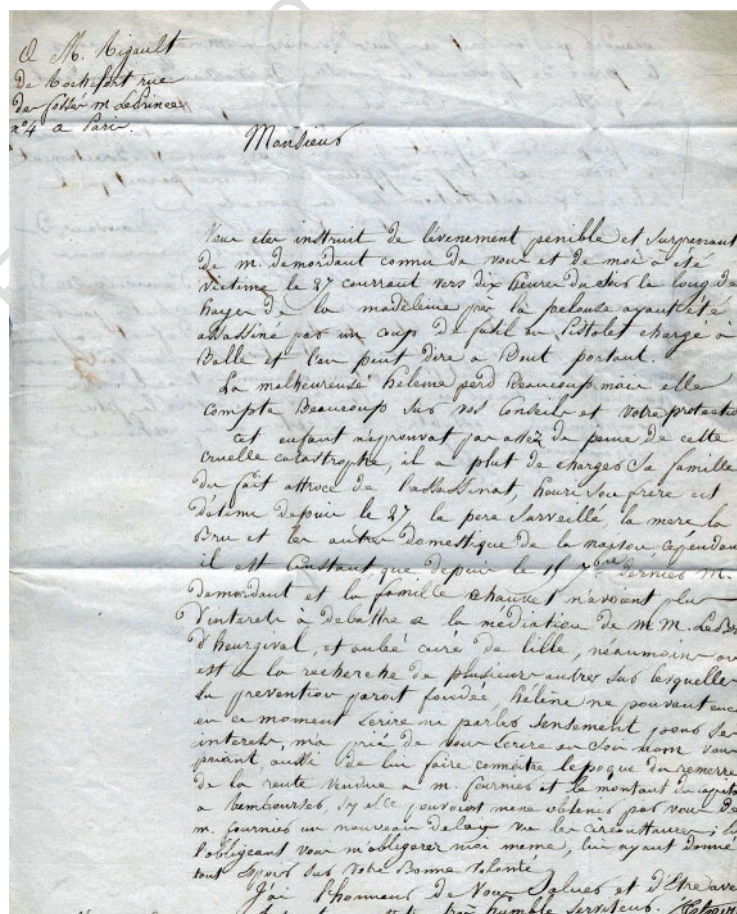 A M. Rigault
De Rochefort rue
des fossés m. LePrince
n° 4 a Paris.
Monsieur
Vous etes instruit de lévenement penible et surprenant
de m. demordant connu de vous et de moi a été
victime le 27 courrant vers dix heures du soir le long de
hayes de la madeleine près la pelouse ayant été
assassiné par un coup de fusil ou Pistolet chargé à
Balle et l'on peut dire a Bout portant.
La malheureuse hélème perd Beaucoup mais elle
compte Beaucoup sur vos Conseils et votre protectio
cet enfant néprouvat pas assez de peine de cette
cruelle catastrophe, il a plut de charger sa famille
du fait attroce de l'assassinat, henri son frère est
détenu depuis le 27 le pere surveillé, la mere la
Bru et les autres domestique de la maison cependan
il est Constant que depuis le 15 7bre dernier M.
demordant et la famille chauvet n'avoient plus
d'interets à debattre a la mediation de m m. LeB
d'heurgival, et aubé curé de lille, néaumoins on
est a la recherche de plusieurs autres sur lesquelles
la prevention paroit fondée, hélène ne pouvant enc
en ce moment écrire ni parler sensement pour ses
interets, m'a prié de vous écrire en son nom vous
priant, aussi de lui faire connoitre lepoque du remerré
de la rente vendue a m. fournier et le montant du capita
a rembourser, sy elle pouvoit meme obtenir par vous de
m. fournier un nouveau delay vu les circonstances;
l'obligeant vous m'obligerez moi meme, lui ayant donné
tout espoir sur votre Bonne volonté
J'ai l'honneur de vous saluer et d'Etre ave
très humble serviteur.